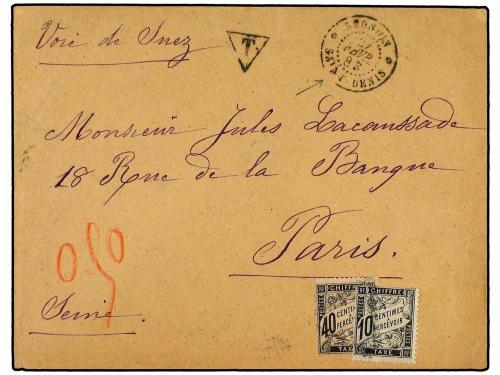 Voie de Suez
T
RÉUNION
SAINT-DENIS
Monsieur Jules Lacaussade
18 Rue de la Banque
Paris.
0,50
Seine
CHIFFRE
40 CENTIMES
À PERCEVOIR
TAXE
CHIFFRE
10 CENTIMES
À PERCEVOIR
TAXE